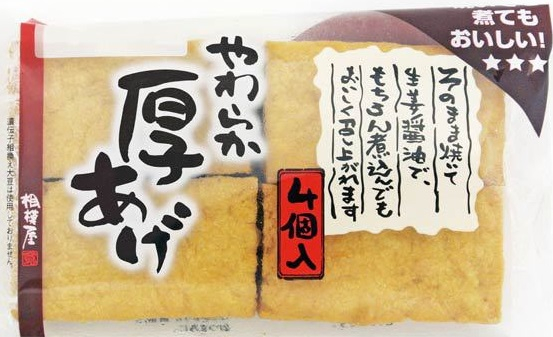 煮ても
おいしい!
★★★
やわらか
厚あげ
そのまま焼いて
生姜醤油で、
もちろん煮込んでも
おいしく召し上がれます
4個入
遺伝子組換え大豆は使用しておりません。
相模屋